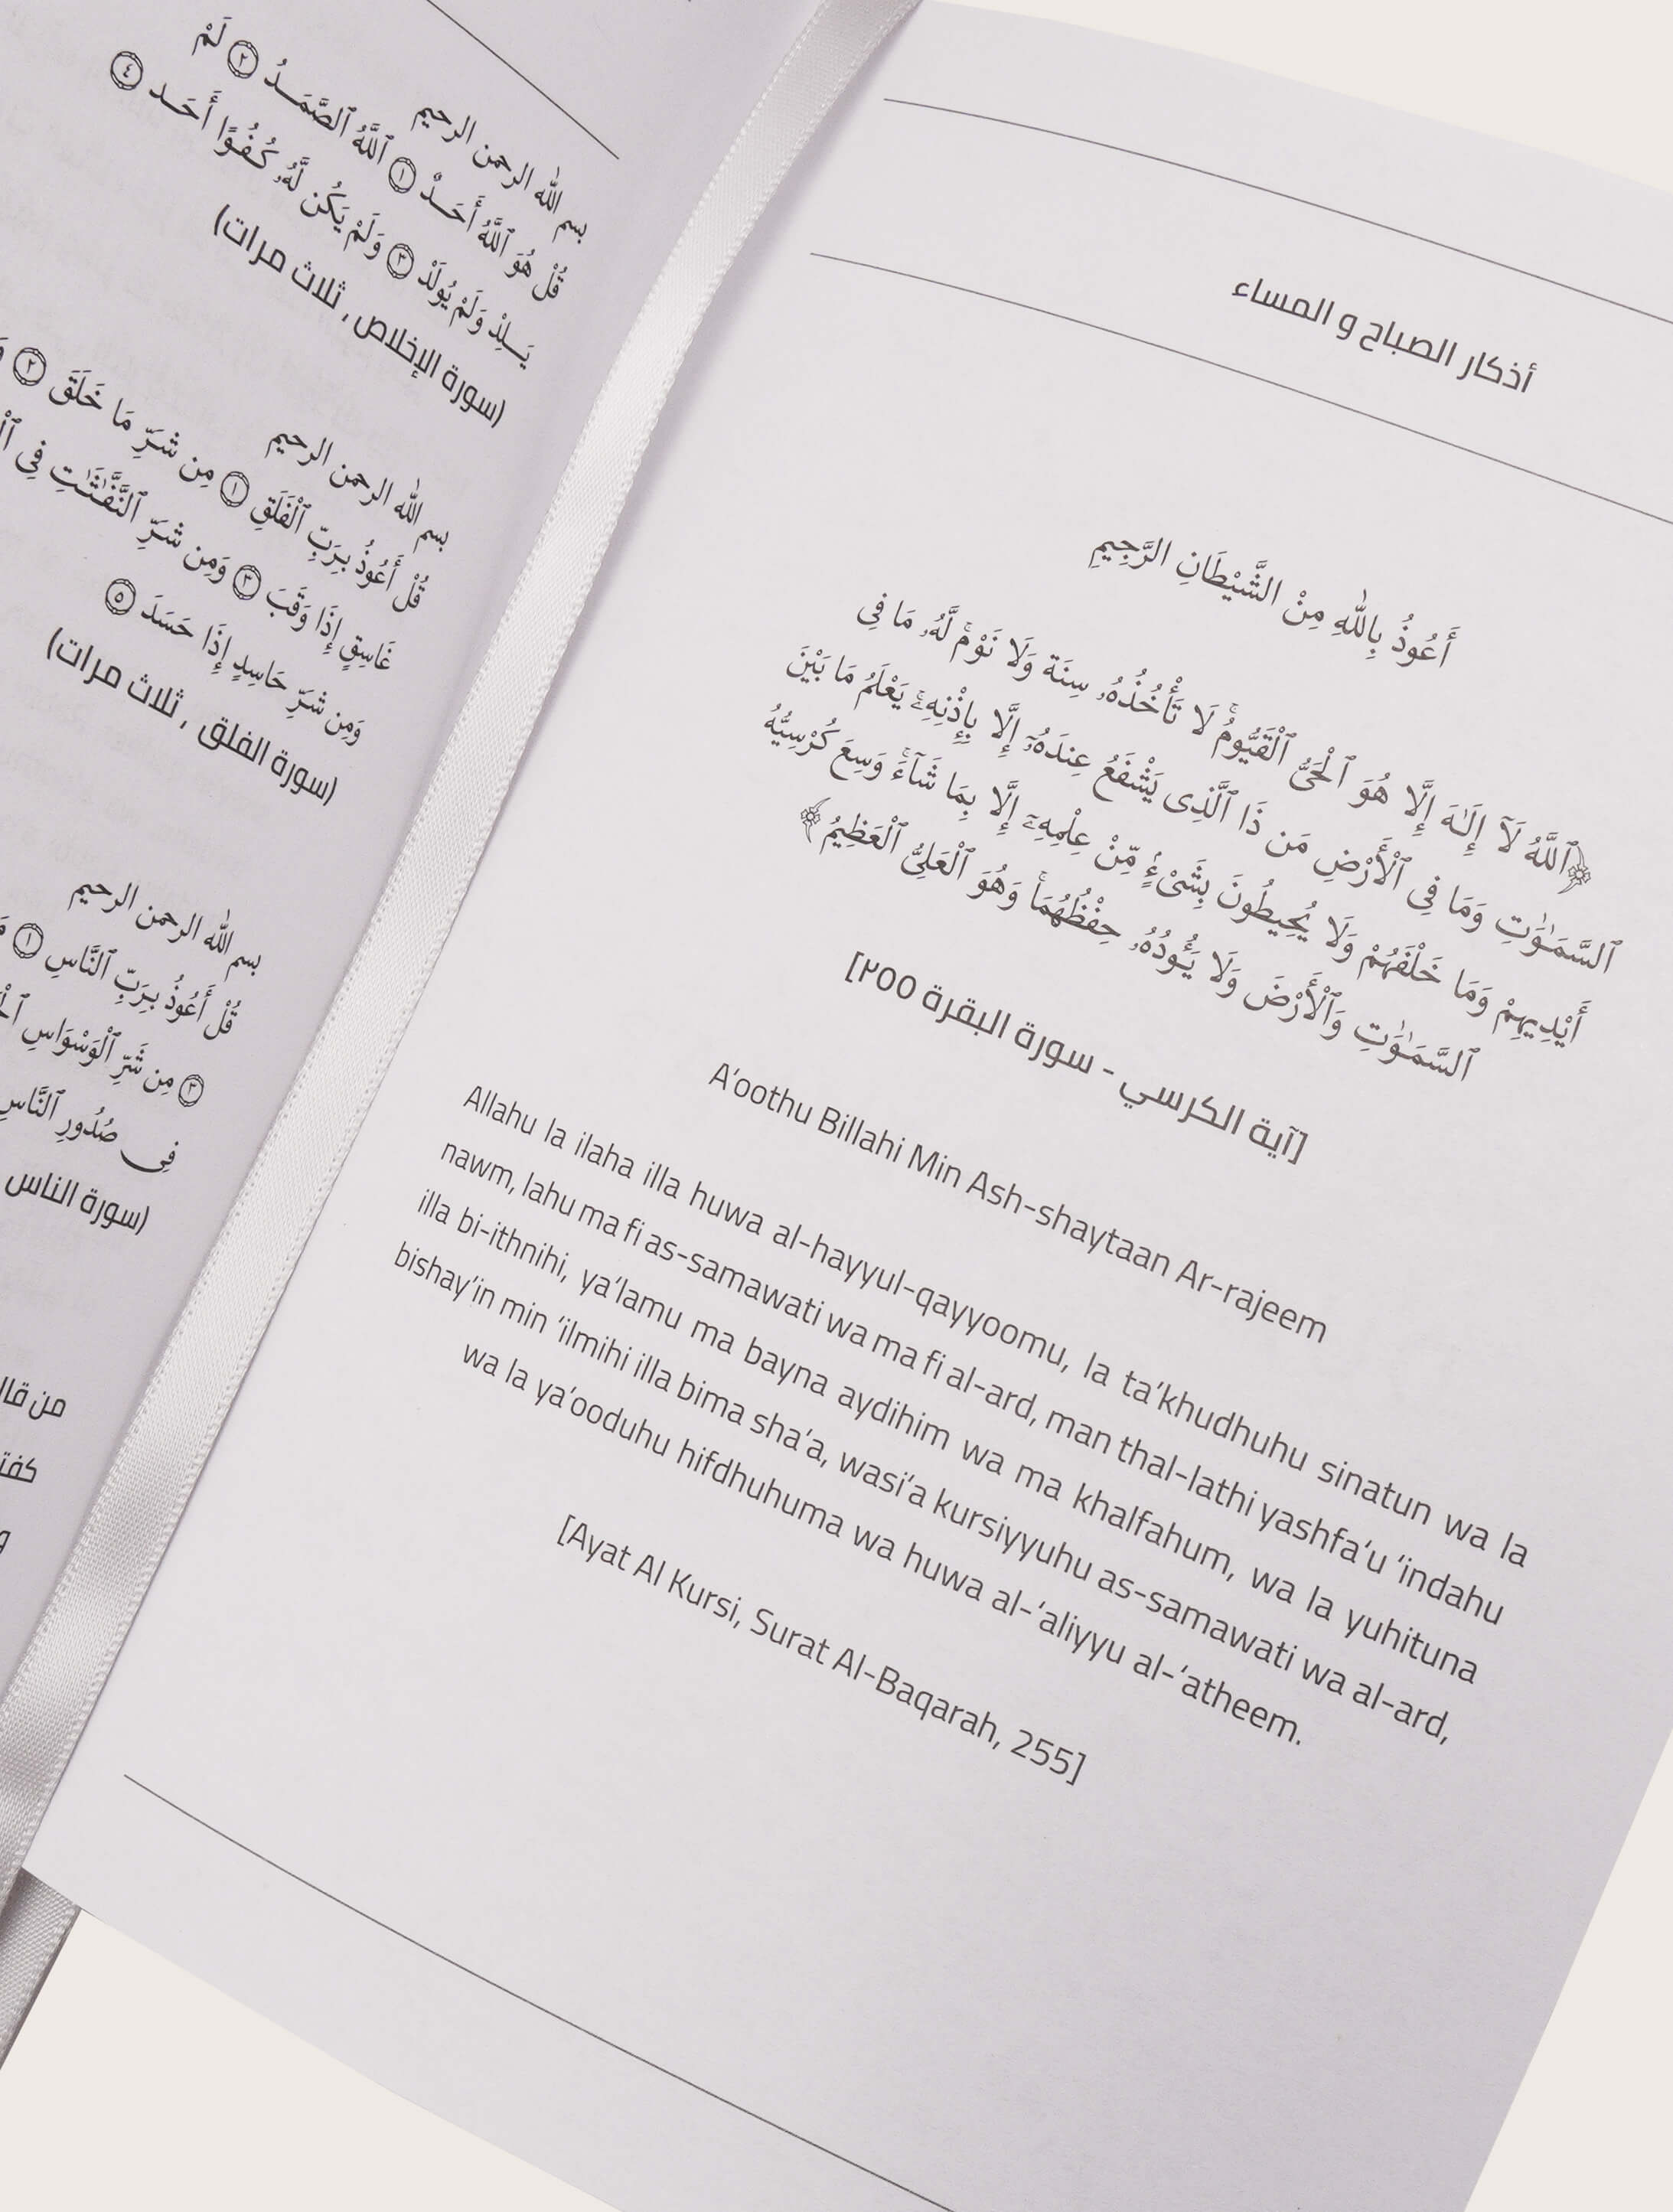 أذكار الصباح و المساء
أَعُوذُ بِاللَّهِ مِنْ الشَّيْطَانِ الرَّجِيمِ
﴿ٱللَّهُ لَآ إِلَـٰهَ إِلَّا هُوَ ٱلْحَىُّ ٱلْقَيُّومُ ۚ لَا تَأْخُذُهُۥ سِنَة وَلَا نَوْمٌ ۚ لَّهُۥ مَا فِى
ٱلسَّمَـٰوَٰتِ وَمَا فِى ٱلْأَرْضِ مَن ذَا ٱلَّذِى يَشْفَعُ عِندَهُۥٓ إِلَّا بِإِذْنِهِۦ ۚ يَعْلَمُ مَا بَيْنَ
أَيْدِيهِمْ وَمَا خَلْفَهُمْ وَلَا يُحِيطُونَ بِشَىْءٍ مِّنْ عِلْمِهِۦٓ إِلَّا بِمَا شَآءَ ۚ وَسِعَ كُرْسِيُّهُ
ٱلسَّمَـٰوَٰتِ وَٱلْأَرْضَ وَلَا يَـُٔودُهُۥ حِفْظُهُمَا ۚ وَهُوَ ٱلْعَلِىُّ ٱلْعَظِيمُ﴾
[آية الكرسي - سورة البقرة ٢٥٥]
A'oothu Billahi Min Ash-shaytaan Ar-rajeem
Allahu la ilaha illa huwa al-hayyul-qayyoomu, la ta'khudhuhu sinatun wa la
nawm, lahu ma fi as-samawati wa ma fi al-ard, man thal-lathi yashfa'u 'indahu
illa bi-ithnihi, ya'lamu ma bayna aydihim wa ma khalfahum, wa la yuhituna
bishay'in min 'ilmihi illa bima sha'a, wasi'a kursiyyuhu as-samawati wa al-ard,
wa la ya'ooduhu hifdhuhuma wa huwa al-'aliyyu al-'atheem.
[Ayat Al Kursi, Surat Al-Baqarah, 255]
بسم الله الرحمن الرحيم
قُلْ هُوَ ٱللَّهُ أَحَدٌ ١ ٱللَّهُ ٱلصَّمَدُ ٢ لَمْ
يَلِدْ وَلَمْ يُولَدْ ٣ وَلَمْ يَكُن لَّهُۥ كُفُوًا أَحَد ٤
(سورة الإخلاص , ثلاث مرات)
بسم الله الرحمن الرحيم
قُلْ أَعُوذُ بِرَبِّ ٱلْفَلَقِ ١ مِن شَرِّ مَا خَلَقَ ٢
غَاسِقٍ إِذَا وَقَبَ ٣ وَمِن شَرِّ ٱلنَّفَّـٰثَـٰتِ فِى
وَمِن شَرِّ حَاسِدٍ إِذَا حَسَدَ ٥
(سورة الفلق , ثلاث مرات)
بسم الله الرحمن الرحيم
قُلْ أَعُوذُ بِرَبِّ ٱلنَّاسِ ١
٣ مِن شَرِّ ٱلْوَسْوَاسِ
فِى صُدُورِ ٱلنَّاسِ
(سورة الناس
من